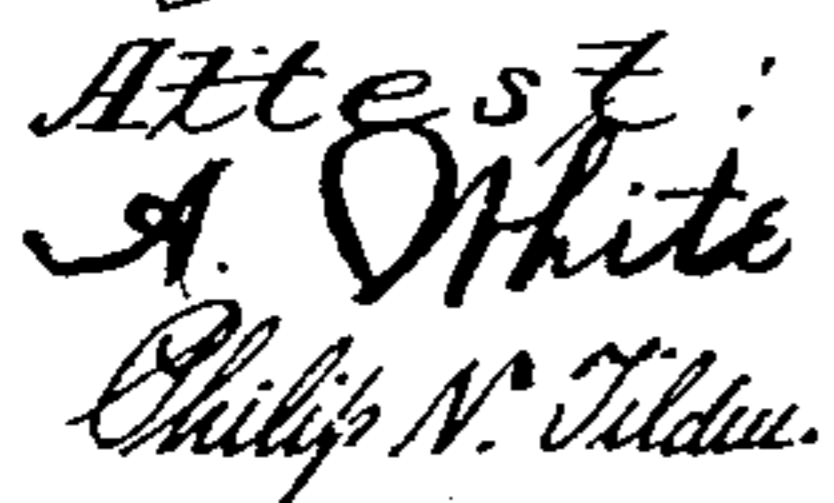 Attest:
A. White
Philip N. Tilden.